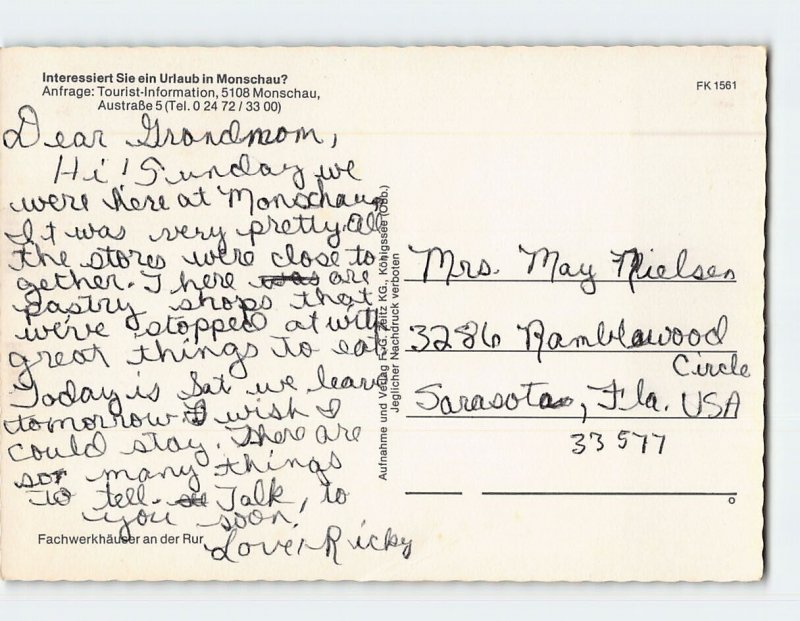 Interessiert Sie ein Urlaub in Monschau?
Anfrage: Tourist-Information, 5108 Monschau,
Austraße 5 (Tel. 0 24 72 / 33 00)
FK 1561
Dear Grandmom,
Hi! Sunday we
were here at Monschau
It was very pretty. All
the stores were close to
gether. There are
pastry shops that
we've stopped at with
great things to eat
Today is Sat we leave
tomorrow I wish I
could stay. There are
so many things
to tell. Talk, to
you soon,
Love, Ricky
Fachwerkhäuser an der Rur
Aufnahme und Verlag F. G. Zeitz KG., Königssee (Obb.)
Jeglicher Nachdruck verboten
Mrs. May Nielsen
3286 Ramblewood
Circle
Sarasota, Fla. USA
33577